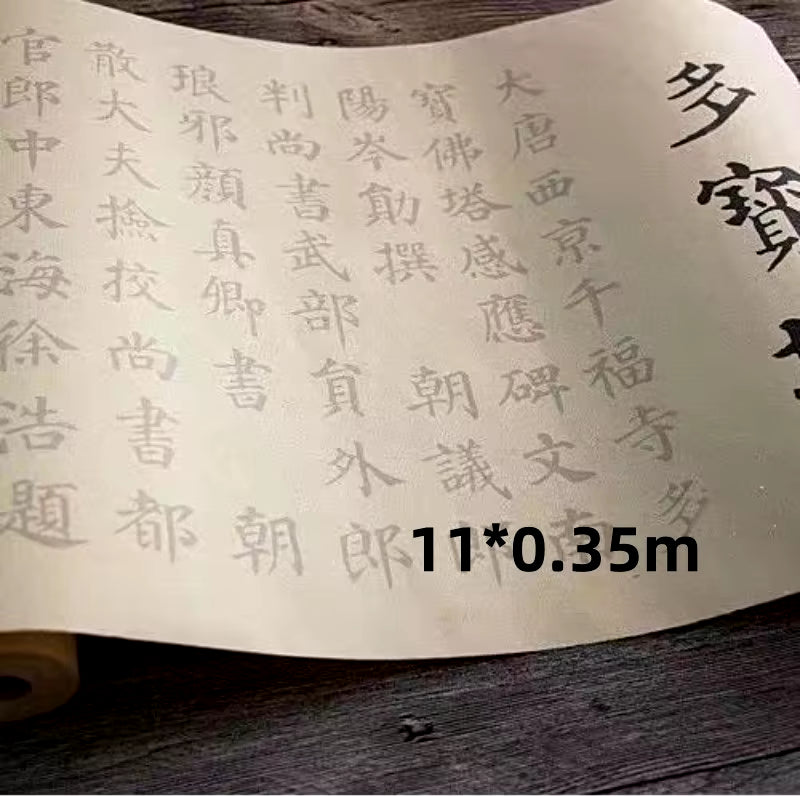 多寶
大唐西京千福寺多
寶佛塔感應碑文南
陽岑勛撰 朝議郎
判尚書武部員外郎
琅邪顏真卿書 朝
散大夫撿挍尚書都
官郎中東海徐浩題
11*0.35m